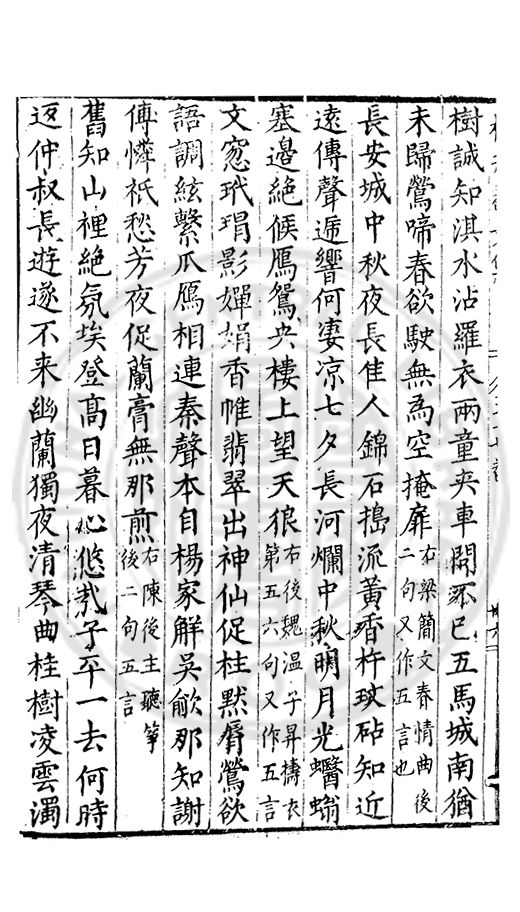 樹誠知淇水沾羅衣兩童夾車問不已五馬城南猶
未歸鶯啼春欲駛無為空掩扉右梁簡文春情曲後
二句又作五言也
長安城中秋夜長佳人錦石搗流黃香杵紋砧知近
遠傳聲遞響何凄凉七夕長河爛中秋明月光蠮螉
塞邊絶候鴈鴛央樓上望天狼右後魏温子昇擣衣
第五六句又作五言
文窓玳瑁影嬋娟香帷翡翠出神仙促柱默脣鶯欲
語調絃繫爪鴈相連秦聲本自楊家解吳歈那知謝
傅憐祇愁芳夜促蘭膏無那煎右陳後主聽筝
後二句五言
舊知山裡絶氛埃登高日暮心悠哉子平一去何時
返仲叔長遊遂不来幽蘭獨夜清琴曲桂樹凌雲濁